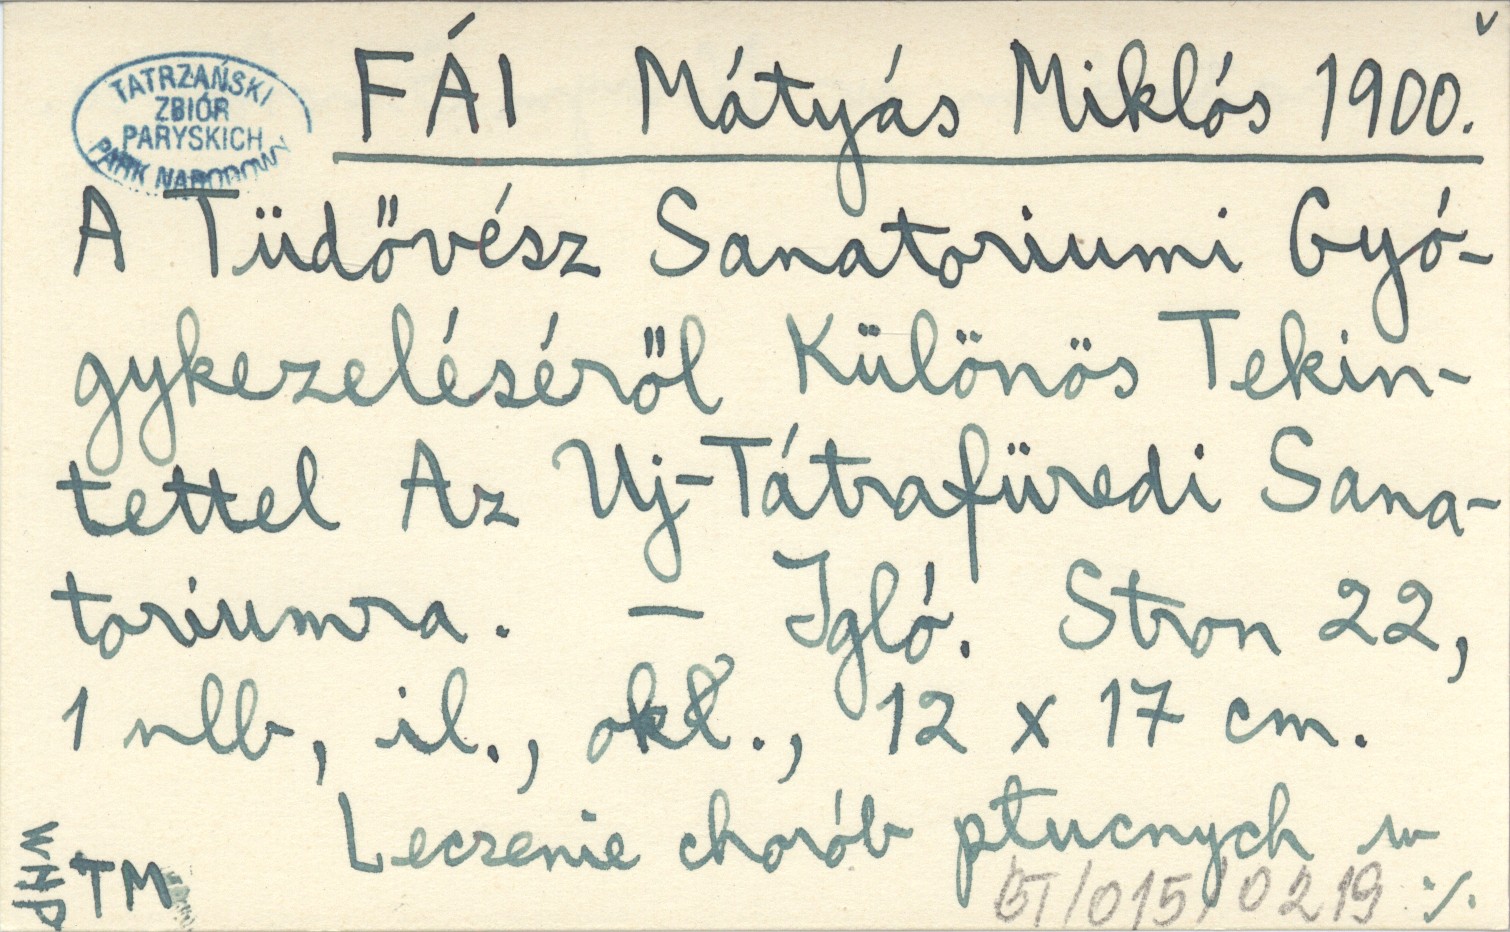 v
TATRZAŃSKI
ZBIÓR
PARYSKICH
PARK NARODOWY
FÁI Mátyás Miklós 1900.
A Tüdővész Sanatoriumi Gyó-
gykezeléséről Különös Tekin-
tettel Az Uj-Tátrafüredi Sana-
toriumra. — Igló. Stron 22,
1 nlb, il., okł., 12 x 17 cm.
Leczenie chorób płucnych w
WHP TM /015/0219 ./.